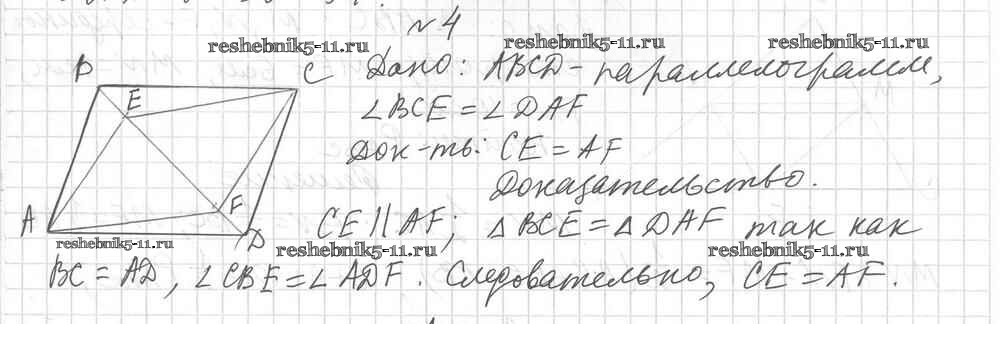 № 4
reshebnik5-11.ru reshebnik5-11.ru reshebnik5-11.ru
B E C Дано: ABCD - параллелограмм,
∠BCE = ∠DAF
Док-ть: CE = AF
Доказательство.
A F D CE || AF; △BCE = △DAF так как
reshebnik5-11.ru reshebnik5-11.ru reshebnik5-11.ru
BC = AD, ∠CBE = ∠ADF. Следовательно, CE = AF.